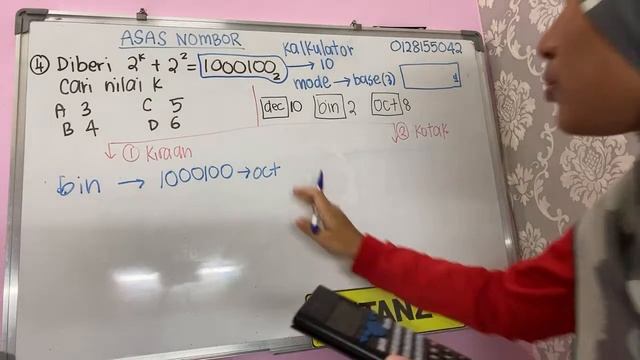 ASAS NOMBOR
0128155042
④ Diberi 2ᵏ + 2² = 1000100₂ → 10
kalkulator
mode → base(3)
Cari nilai k
A 3 C 5
B 4 D 6
dec 10 bin 2 oct 8
① Kiraan
② Kotak
bin → 1000100 → oct
TANZ